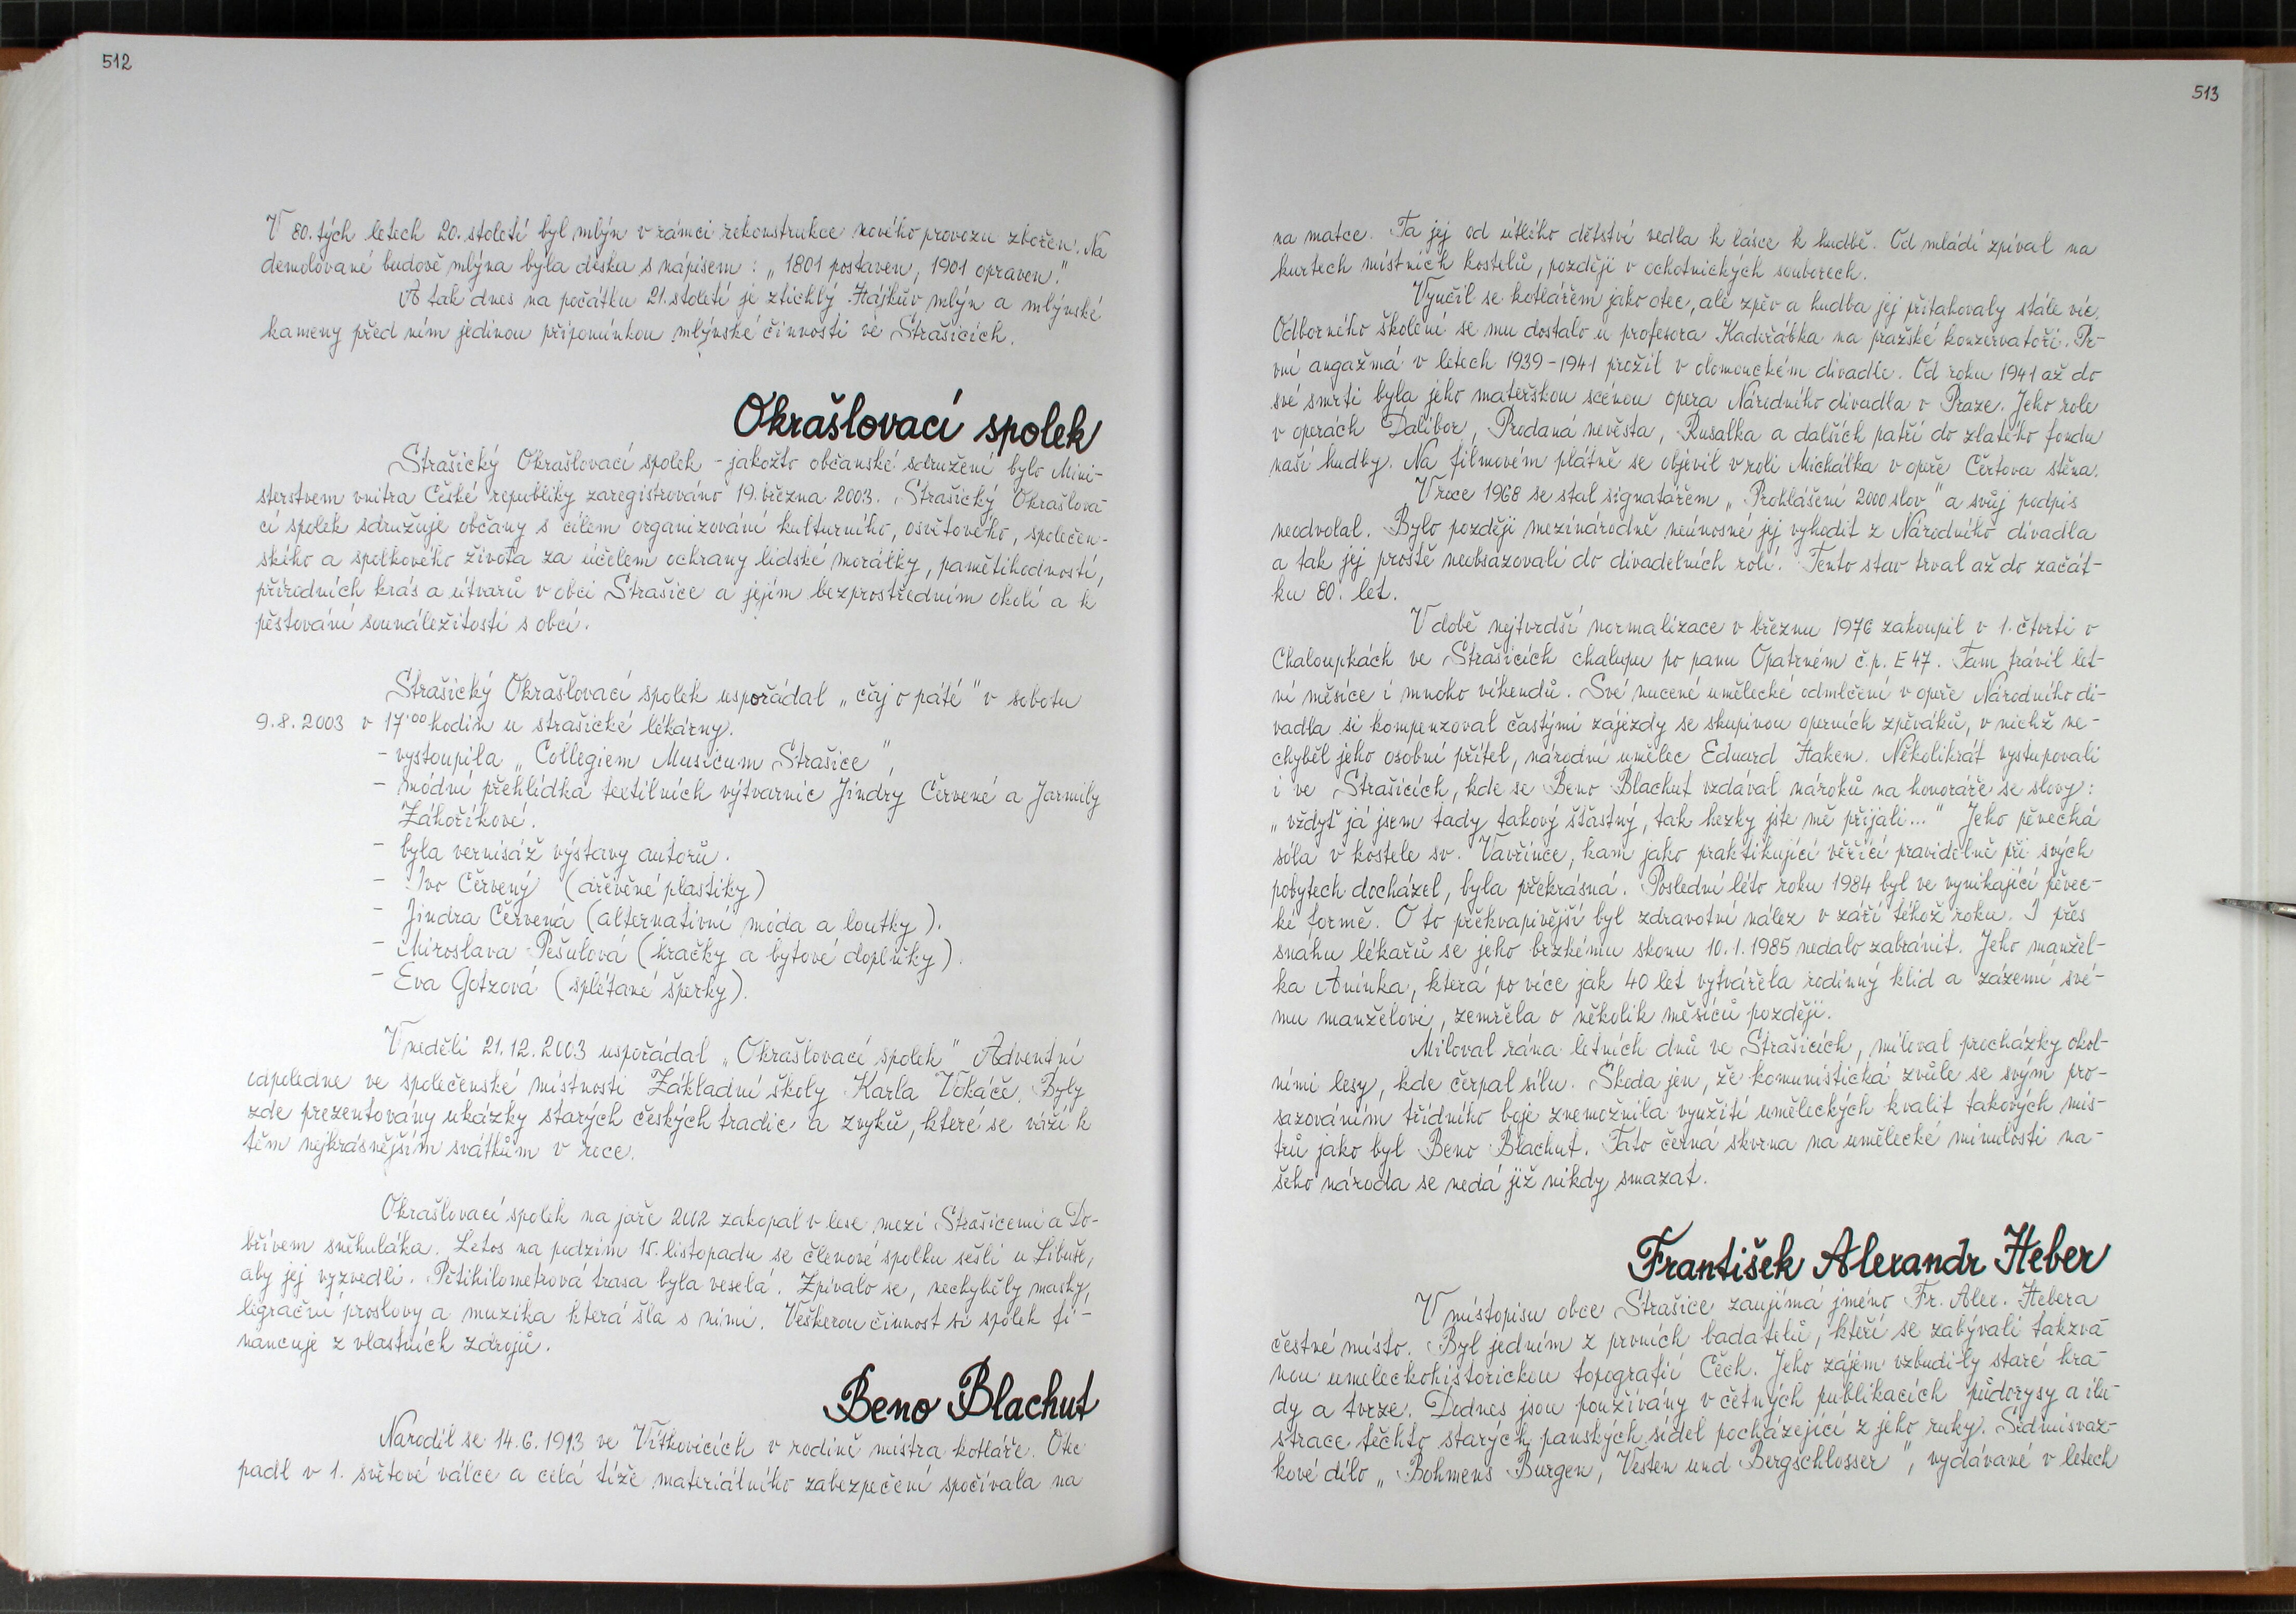 512
V 80.tých letech 20. století byl mlýn v rámci rekonstrukce nového provozu zbořen. Na
demolované budově mlýna byla deska s nápisem : „ 1801 postaven, 1901 opraven."
A tak dnes na počátku 21. století je ztichlý Hájkův mlýn a mlýnské
kameny před ním jedinou připomínkou mlýnské činnosti ve Strašicích.
Okrašlovací spolek
Strašický Okrašlovací spolek - jakožto občanské sdružení bylo Mini-
sterstvem vnitra České republiky zaregistrováno 19. března 2003. Strašický Okrašlova-
cí spolek sdružuje občany s cílem organizování kulturního, osvětového, společen-
ského a spolkového života za účelem ochrany lidské morálky, pamětihodností,
přírodních krás a útvarů v obci Strašice a jejím bezprostředním okolí a k
pěstování sounáležitosti s obcí.
Strašický Okrašlovací spolek uspořádal „ čaj o páté " v sobotu
9. 8. 2003 v 17·00 hodin u strašické lékárny.
- vystoupila „ Collegiem Musicum Strašice ",
- módní přehlídka textilních výtvarnic Jindry Červené a Jarmily
Záhoříkové.
- byla vernisáž výstavy autorů.
- Ivo Červený (dřevěné plastiky)
- Jindra Červená (alternativní móda a loutky).
- Miroslava Pešulová (hračky a bytové doplňky).
- Eva Gotzová (splétané šperky).
V neděli 21.12.2003 uspořádal „Okrašlovací spolek" Adventní
odpoledne ve společenské místnosti Základní školy Karla Vokáče. Byly
zde prezentovány ukázky starých českých tradic a zvyků, které se váží k
těm nejkrásnějším svátkům v roce.
Okrašlovací spolek na jaře 2002 zakopal v lese mezi Strašicemi a Do-
břívem sněhuláka. Letos na podzim 15. listopadu se členové spolku sešli u Libuše,
aby jej vyzvedli. Pětikilometrová trasa byla veselá. Zpívalo se, nechyběly masky,
legrační proslovy a muzika která šla s nimi. Veškerou činnost si spolek fi-
nancuje z vlastních zdrojů.
Beno Blachut
Narodil se 14.6.1913 ve Vítkovicích v rodině mistra kotláře. Otec
padl v 1. světové válce a celá tíže materiálního zabezpečení spočívala na
513
na matce. Ta jej od útlého dětství vedla k lásce k hudbě. Od mládí zpíval na
kurtech místních kostelů, později v ochotnických souborech.
Vyučil se kotlářem jako otec, ale zpěv a hudba jej přitahovaly stále víc.
Odborného školení se mu dostalo u profesora Kadeřábka na pražské konzervatoři. Pr-
vní angažmá v letech 1939-1941 prožil v olomouckém divadle. Od roku 1941 až do
své smrti byla jeho mateřskou scénou opera Národního divadla v Praze. Jeho role
v operách Dalibor, Prodaná nevěsta, Rusalka a dalších patří do zlatého fondu
naší hudby. Na filmovém plátně se objevil v roli Michálka v opeře Čertova stěna.
V roce 1968 se stal signatářem „ Prohlášení 2000 slov " a svůj podpis
neodvolal. Bylo později mezinárodně neúnosné jej vyhodit z Národního divadla
a tak jej prostě neobsazovali do divadelních rolí. Tento stav trval až do začát-
ku 80. let.
V době nejtvrdší normalizace v březnu 1976 zakoupil v 1. čtvrti v
Chaloupkách ve Strašicích chalupu po panu Opatrném č.p. E 47. Tam trávil let-
ní měsíce i mnoho víkendů. Své nucené umělecké odmlčení v opeře Národního di-
vadla si kompenzoval častými zájezdy se skupinou operních zpěváků, v nichž ne-
chyběl jeho osobní přítel, národní umělec Eduard Haken. Několikrát vystupovali
i ve Strašicích, kde se Beno Blachut vzdával nároků na honoráře se slovy :
„ vždyť já jsem tady takový šťastný, tak hezky jste mě přijali..." Jeho pěvecká
sóla v kostele sv. Vavřince, kam jako praktikující věřící pravidelně při svých
pobytech docházel, byla překrásná. Poslední léto roku 1984 byl ve vynikající pěvec-
ké formě. O to překvapivější byl zdravotní nález v září téhož roku. I přes
snahu lékařů se jeho brzkému skonu 10.1.1985 nedalo zabránit. Jeho manžel-
ka Aninka, která po více jak 40 let vytvářela rodinný klid a zázemí své-
mu manželovi, zemřela o několik měsíců později.
Miloval rána letních dnů ve Strašicích, miloval procházky okol-
ními lesy, kde čerpal sílu. Škoda jen, že komunistická zvůle se svým pro-
sazováním třídního boje znemožnila využití uměleckých kvalit takových mis-
trů jako byl Beno Blachut. Tato černá skvrna na umělecké minulosti na-
šeho národa se nedá již nikdy smazat.
František Alexandr Heber
V místopisu obce Strašice zaujímá jméno Fr. Alex. Hebera
čestné místo. Byl jedním z prvních badatelů, kteří se zabývali takzva-
nou uměleckohistorickou topografií Čech. Jeho zájem vzbudily staré hra-
dy a tvrze. Dodnes jsou používány v četných publikacích půdorysy a ilu-
strace těchto starých panských sídel pocházející z jeho ruky. Sedmisvaz-
kové dílo „ Bohmens Burgen, Vesten und Bergschlosser ", vydávané v letech